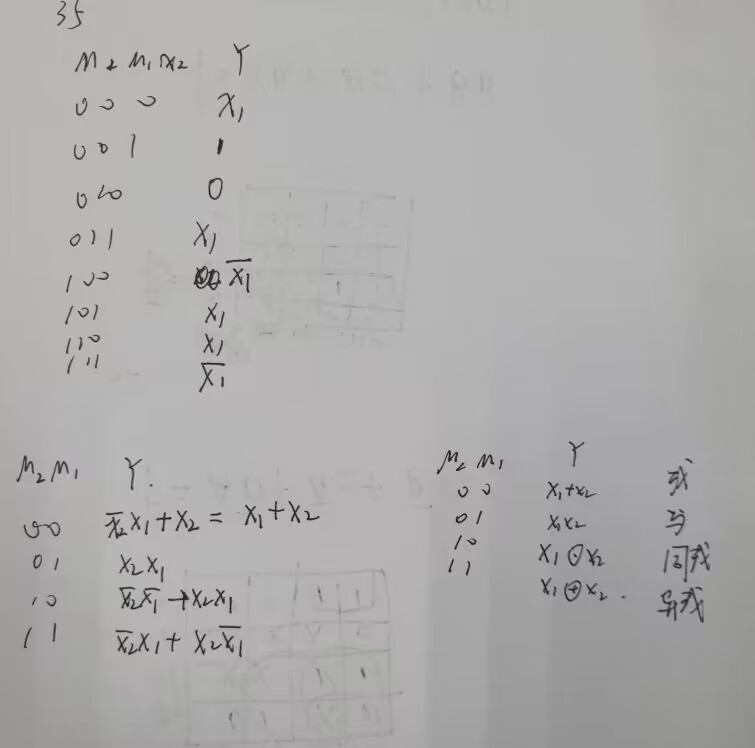 35
M₂ M₁ x₂ Y
0 0 0 X₁
0 0 1 1
0 1 0 0
0 1 1 X₁
1 0 0 X̅₁
1 0 1 X₁
1 1 0 X₁
1 1 1 X̅₁
M₂ M₁ Y.
0 0 x̅₂x₁+x₂ = x₁+x₂
0 1 x₂x₁
1 0 x̅₂x̅₁+x₂x₁
1 1 x̅₂x₁+x₂x̅₁
M₂ M₁ Y
0 0 x₁+x₂ 或
0 1 x₁x₂ 与
1 0 x₁⊙x₂ 同或
1 1 x₁⊕x₂. 异或